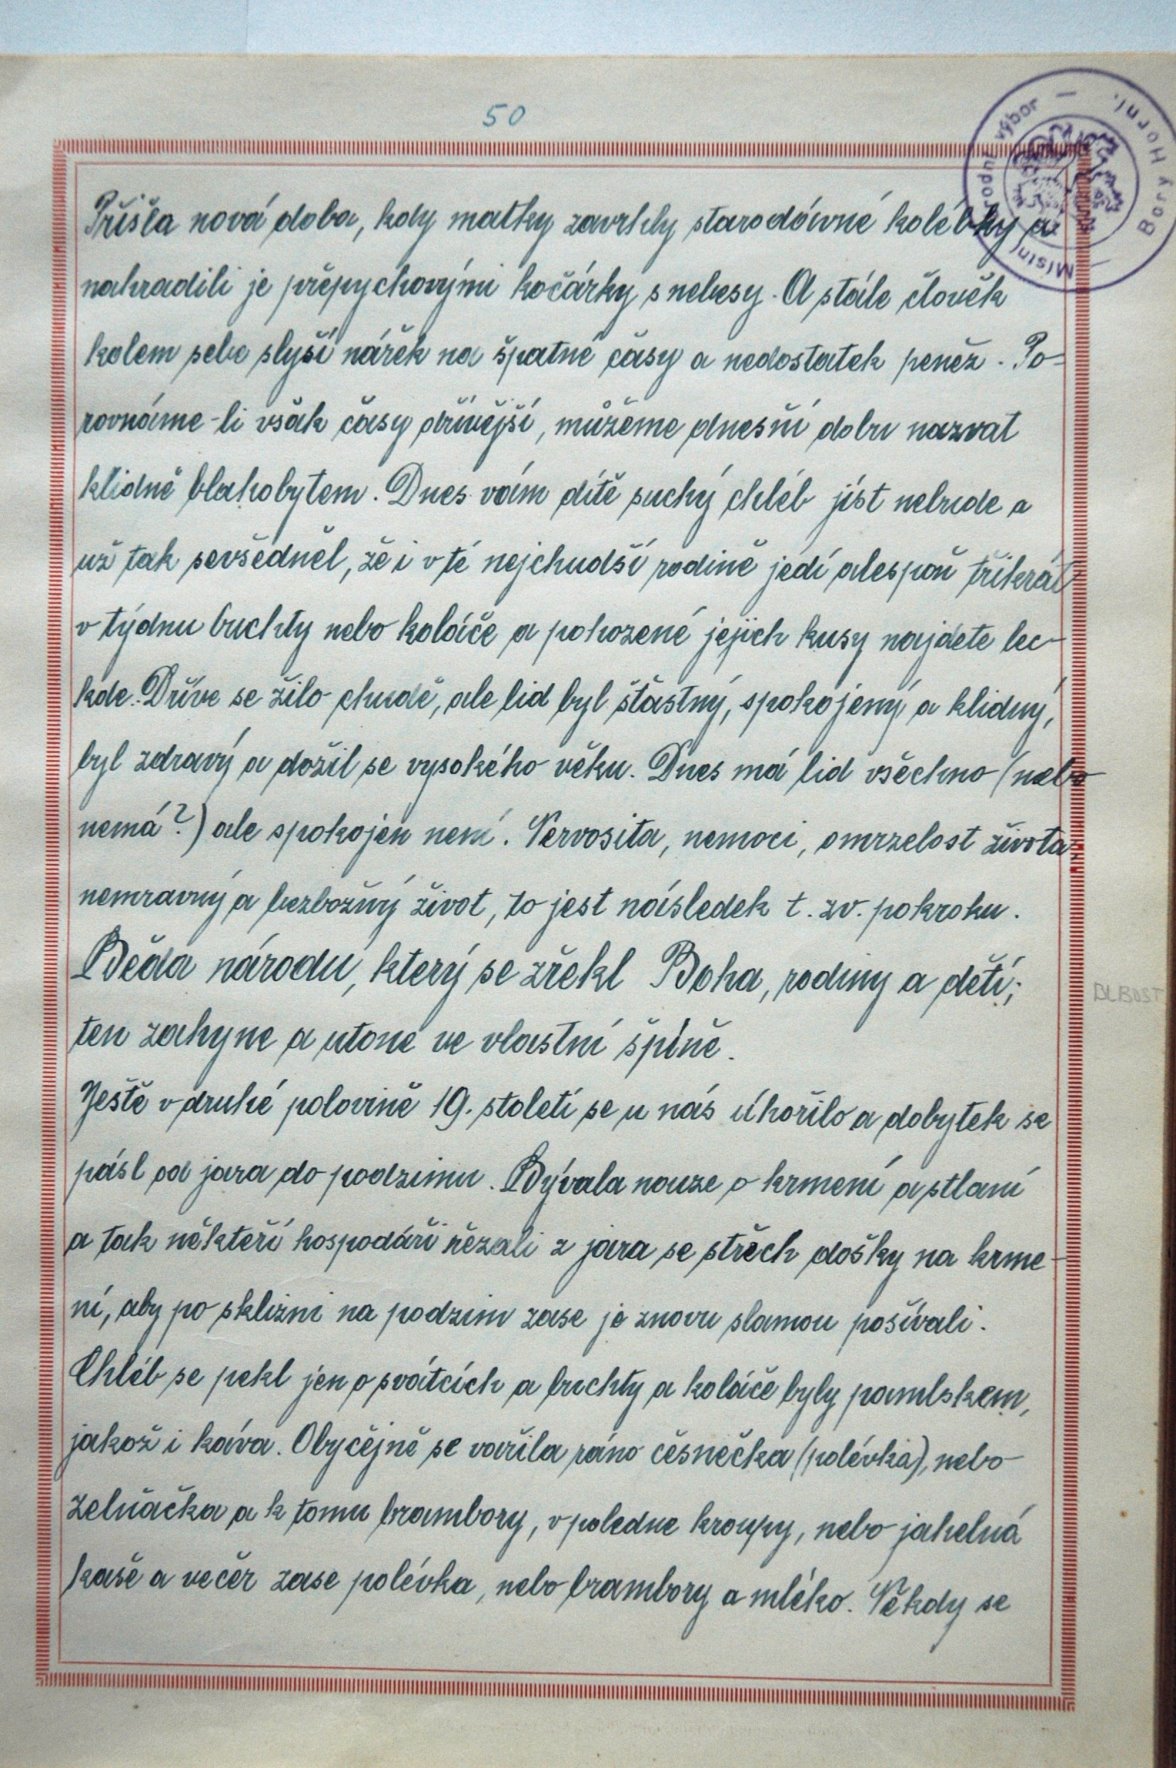 50
Místní národní výbor — Bory Horní. —
Přišla nová doba, kdy matky zavrhly starodávné kolébky a
nahradili je přepychovými kočárky s nebesy. A stále člověk
kolem sebe slyší nářek na špatné časy a nedostatek peněz. Po-
rovnáme-li však časy dřívější, můžeme dnešní dobu nazvat
klidně blahobytem. Dnes vám dítě suchý chléb jíst nebude a
už tak sevšedněl, že i v té nejchudší rodině jedí alespoň třikrát
v týdnu buchty nebo koláče a pohozené jejich kusy najdete lec-
kde. Dříve se žilo chudě, ale lid byl šťastný, spokojený a klidný,
byl zdravý a dožil se vysokého věku. Dnes má lid všechno (nebo
nemá?) ale spokojen není. Nervosita, nemoci, omrzelost života,
nemravný a bezbožný život, to jest následek t. zv. pokroku.
Běda národu, který se zřekl Boha, rodiny a dětí;
BLBOST
ten zahyne a utone ve vlastní špíně.
Ještě v druhé polovině 19. století se u nás úhořilo a dobytek se
pásl od jara do podzimu. Bývala nouze o krmení a stlaní
a tak někteří hospodáři řezali z jara se střech došky na krme-
ní, aby po sklizni na podzim zase je znovu slamou pošívali.
Chléb se pekl jen o svátcích a buchty a koláče byly pamlskem,
jakož i káva. Obyčejně se vařila ráno česnečka (polévka), nebo
zelňačka a k tomu brambory, v poledne kroupy, nebo jahelná
kaše a večer zase polévka, nebo brambory a mléko. Někdy se